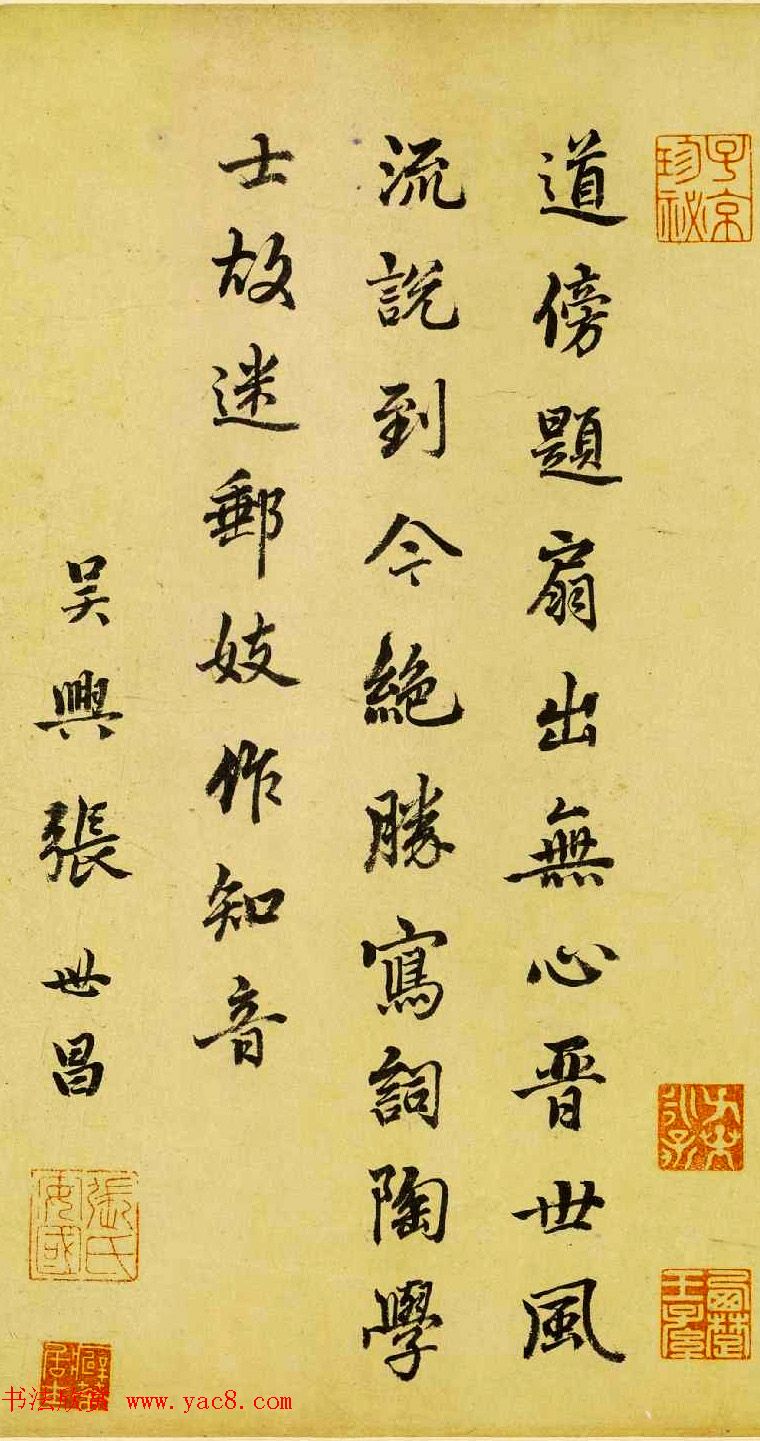 道傍題扇出無心晉世風
流說到今絕勝寫詞陶學
士故迷郵妓作知音
吳興張世昌
子京
珍祕
張氏
書法欣賞 www.yac8.com